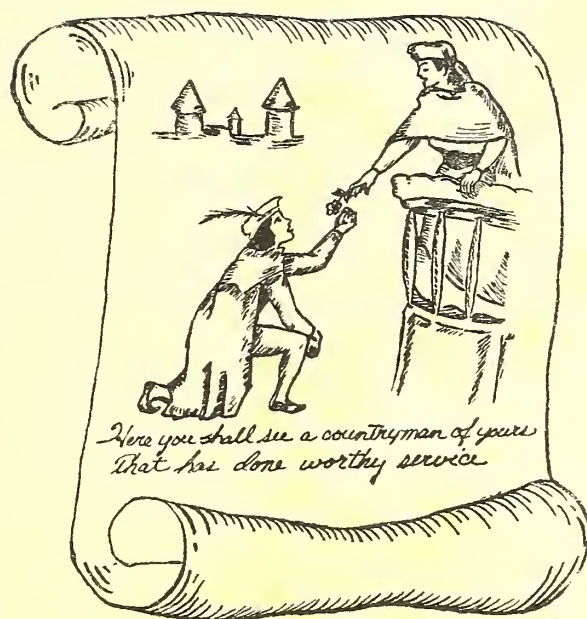 Here you shall see a countryman of yours
That has done worthy service